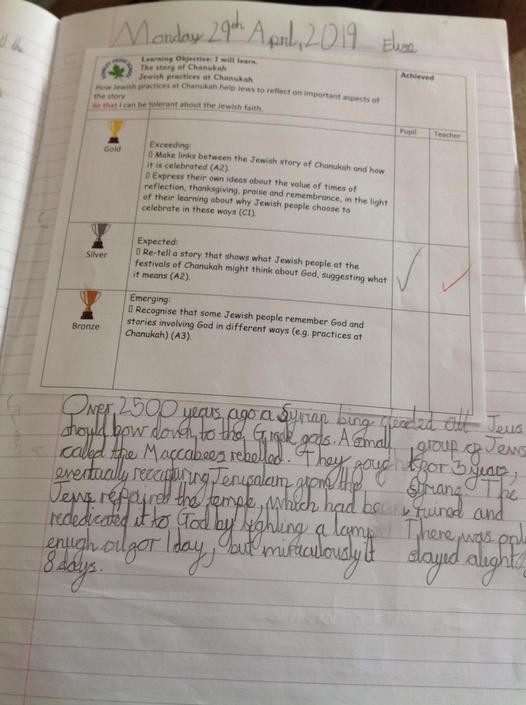 Monday 29th April, 2019 Elise
Learning Objective: I will learn.
The story of Chanukah
Jewish practices at Chanukah
How Jewish practices at Chanukah help Jews to reflect on important aspects of
the story
So that I can be tolerant about the Jewish faith.
Achieved
Pupil Teacher
Gold
Exceeding:
Make links between the Jewish story of Chanukah and how
it is celebrated (A2).
Express their own ideas about the value of times of
reflection, thanksgiving, praise and remembrance, in the light
of their learning about why Jewish people choose to
celebrate in these ways (C1).
Silver
Expected:
Re-tell a story that shows what Jewish people at the
festivals of Chanukah might think about God, suggesting what
it means (A2).
Bronze
Emerging:
Recognise that some Jewish people remember God and
stories involving God in different ways (e.g. practices at
Chanukah) (A3).
Over 2500 years ago a Syrian all Jews
should bow down to the Greek gods. A small group of Jews
called the Maccabees rebelled. They for 3 years,
eventually Jerusalem the Syrians. The
Jews repaired the temple, which had ruined and
rededicated it to God by lighting a lamp There was only
oil for 1 day, but miraculously it stayed alight
8 days.